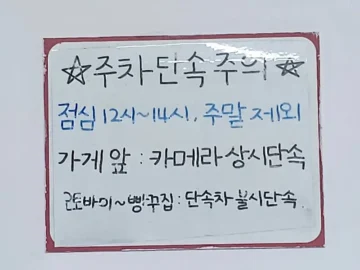 ☆주차단속주의☆
점심 12시~14시, 주말 제외
가게 앞 : 카메라 상시단속
오토바이~빵꾸집 : 단속차 불시단속